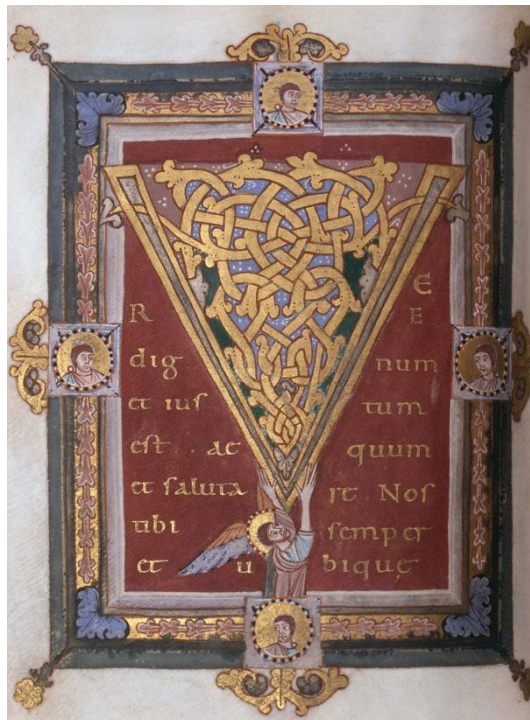 V E
R E
dig num
et ius tum
est . ae quum
et saluta re Nos
tibi semper
et u biquę